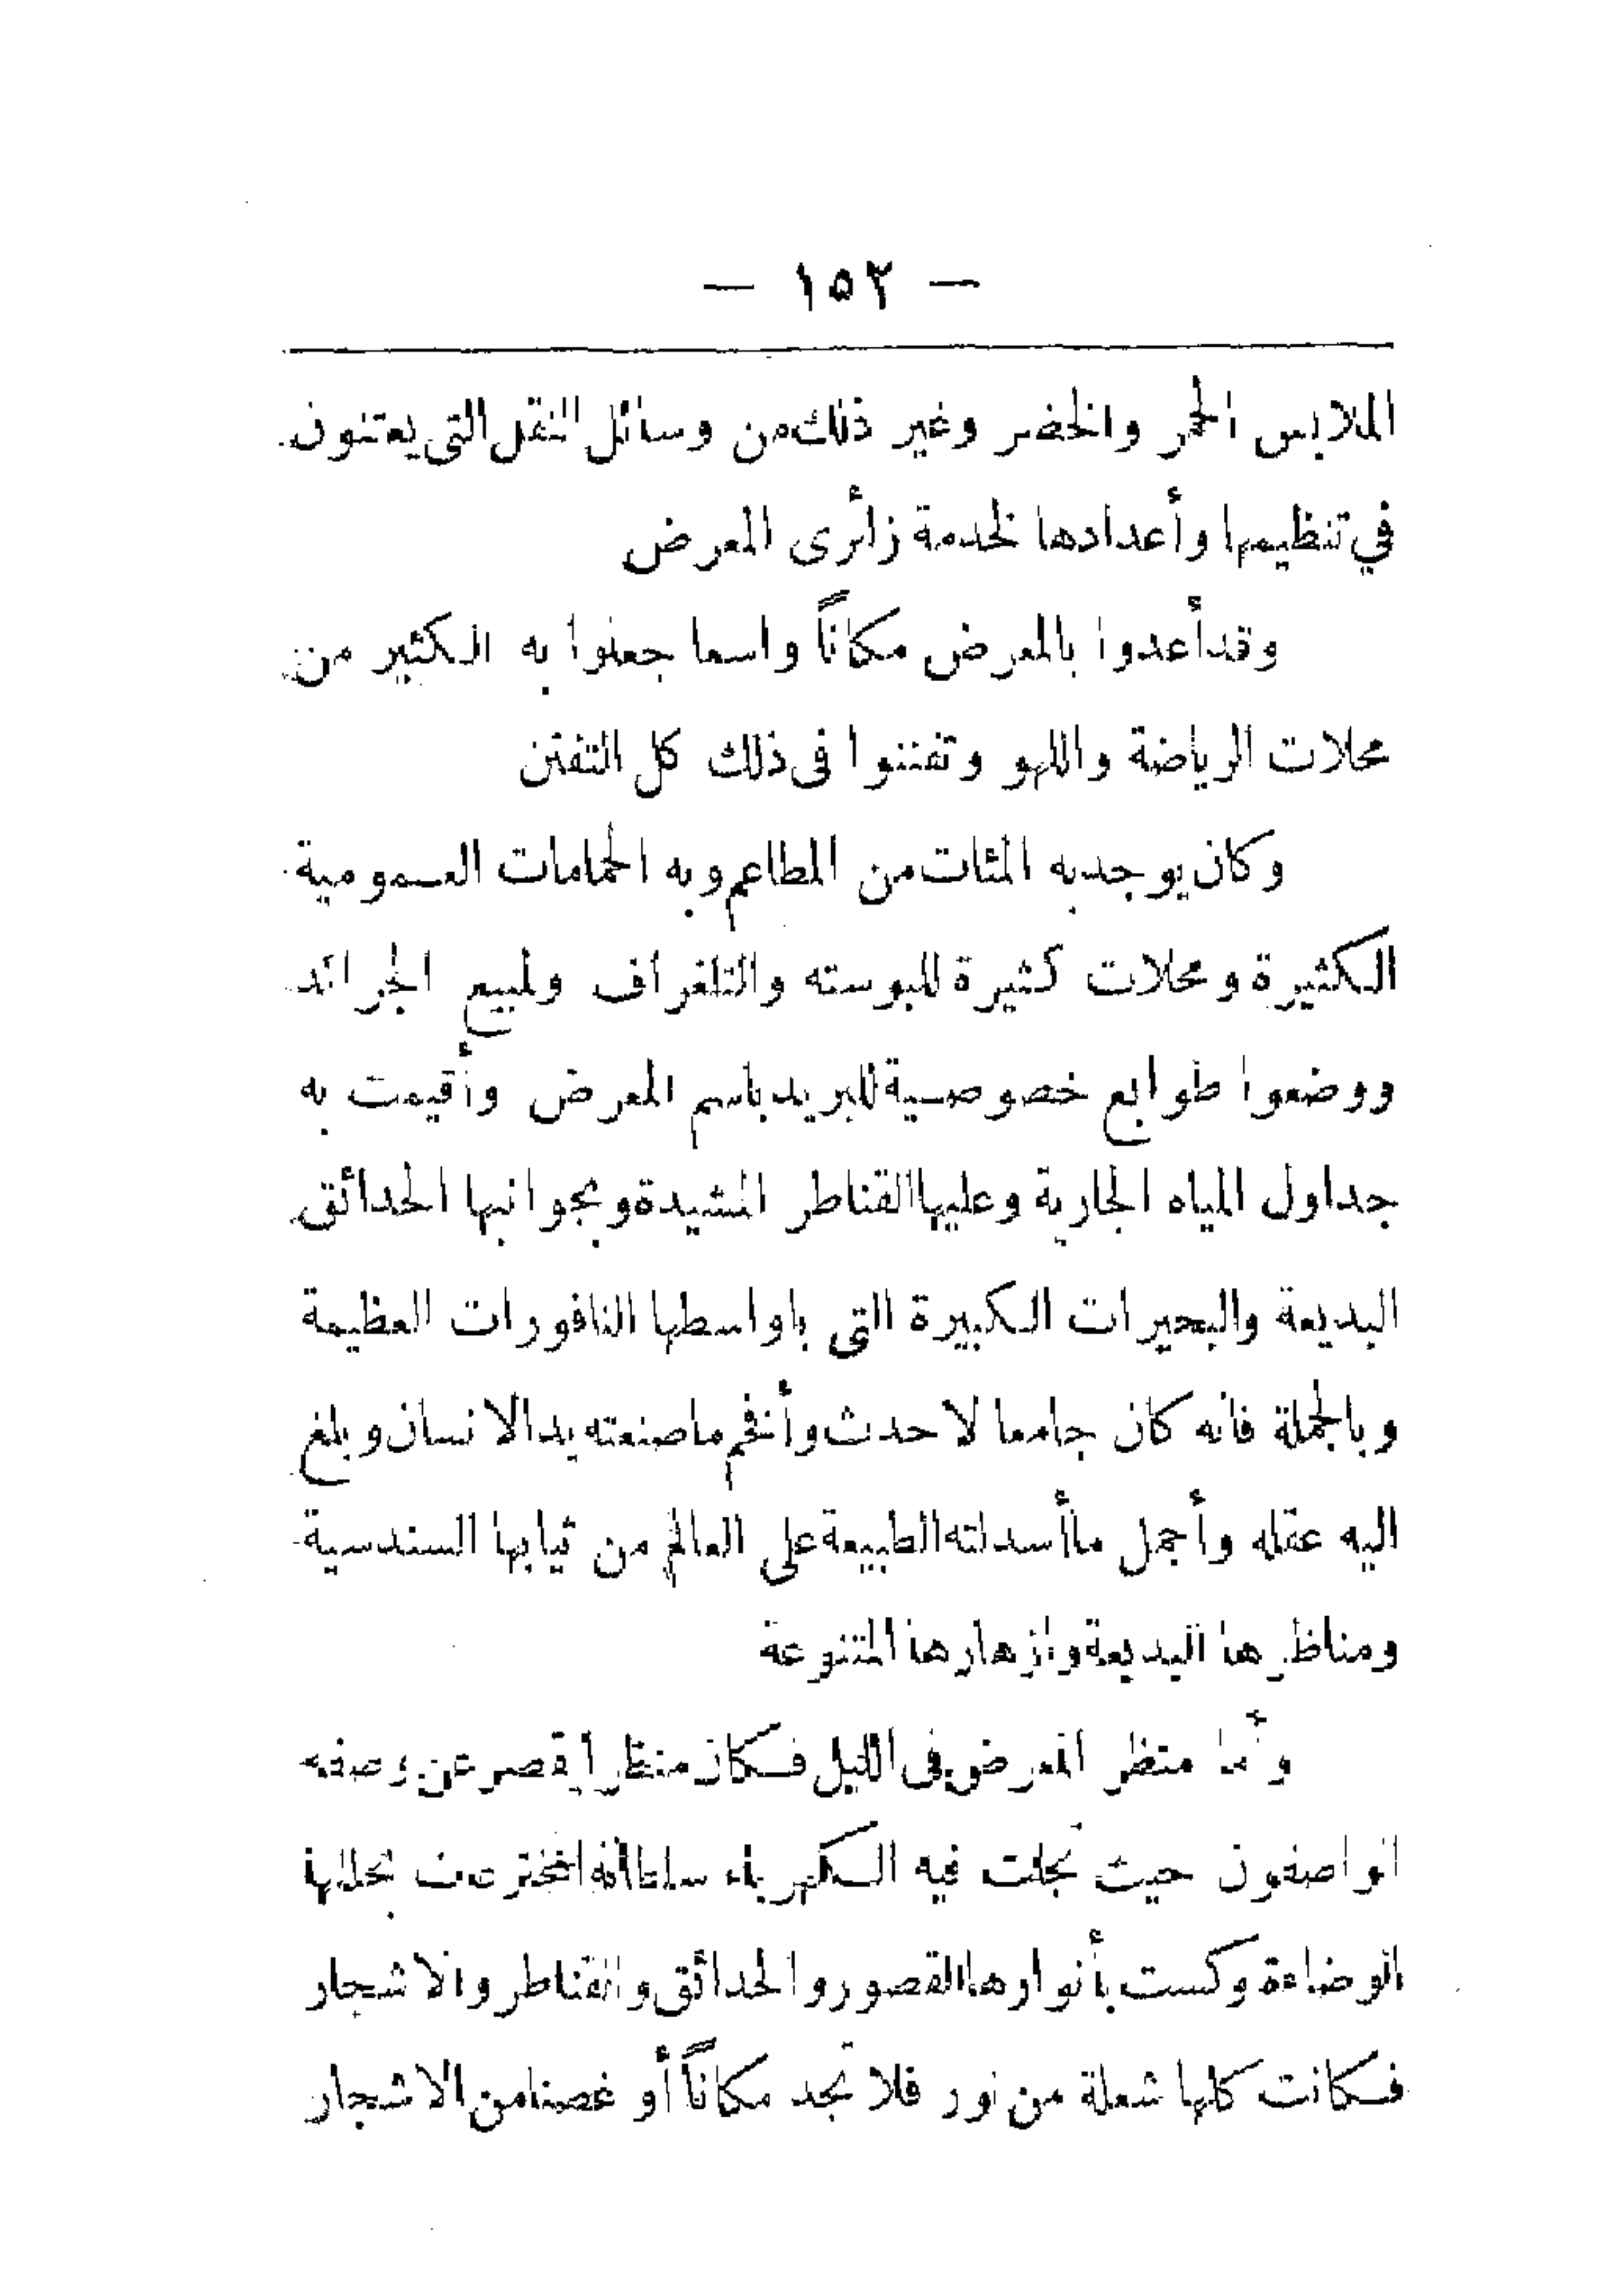 — ١٥٢ —
الملابس الحمر والخضر وغير ذلك من وسائل النقل التى يعتنون
في تنظيمها وأعدادها لخدمة زائرى المعرض
وقد أعدوا بالمعرض مكاناً واسعا جعلوا به الكثير من
محلات الرياضة واللهو وتفننوا فى ذلك كل التفنن
وكان يوجد به المئات من المطاعم وبه الحمامات العمومية
الكثيرة ومحلات كثيرة للبوسته والتلغراف ولمبيع الجرائد
ووضعوا طوابع خصوصية للبريد باسم المعرض وأقيمت به
جداول المياه الجارية وعليها القناطر المشيدة وبجوانبها الحدائق
البديعة والبحيرات الكبيرة التى باواسطها النافورات العظيمة
وبالجملة فانه كان جامعا لاحدث وأنفخم ما صنعته يد الانسان وبلغ
اليه عقله وأجمل ما أسدلته الطبيعة على العالم من ثيابها السندسية
ومناظرها البديعة وازهارها المتنوعة
وأما منظر المعرض فى الليل فكان منظراً يقصر عن وصفه
الواصفون حيث تجلت فيه الكهرباء سلطانة اتخترعت بحللها
الوضاءة وكست بأنوارها القصور والحدائق والقناطر والاشجار
فكانت كلها شعلة من نور فلا تجد مكاناً أو غصنا من الاشجار